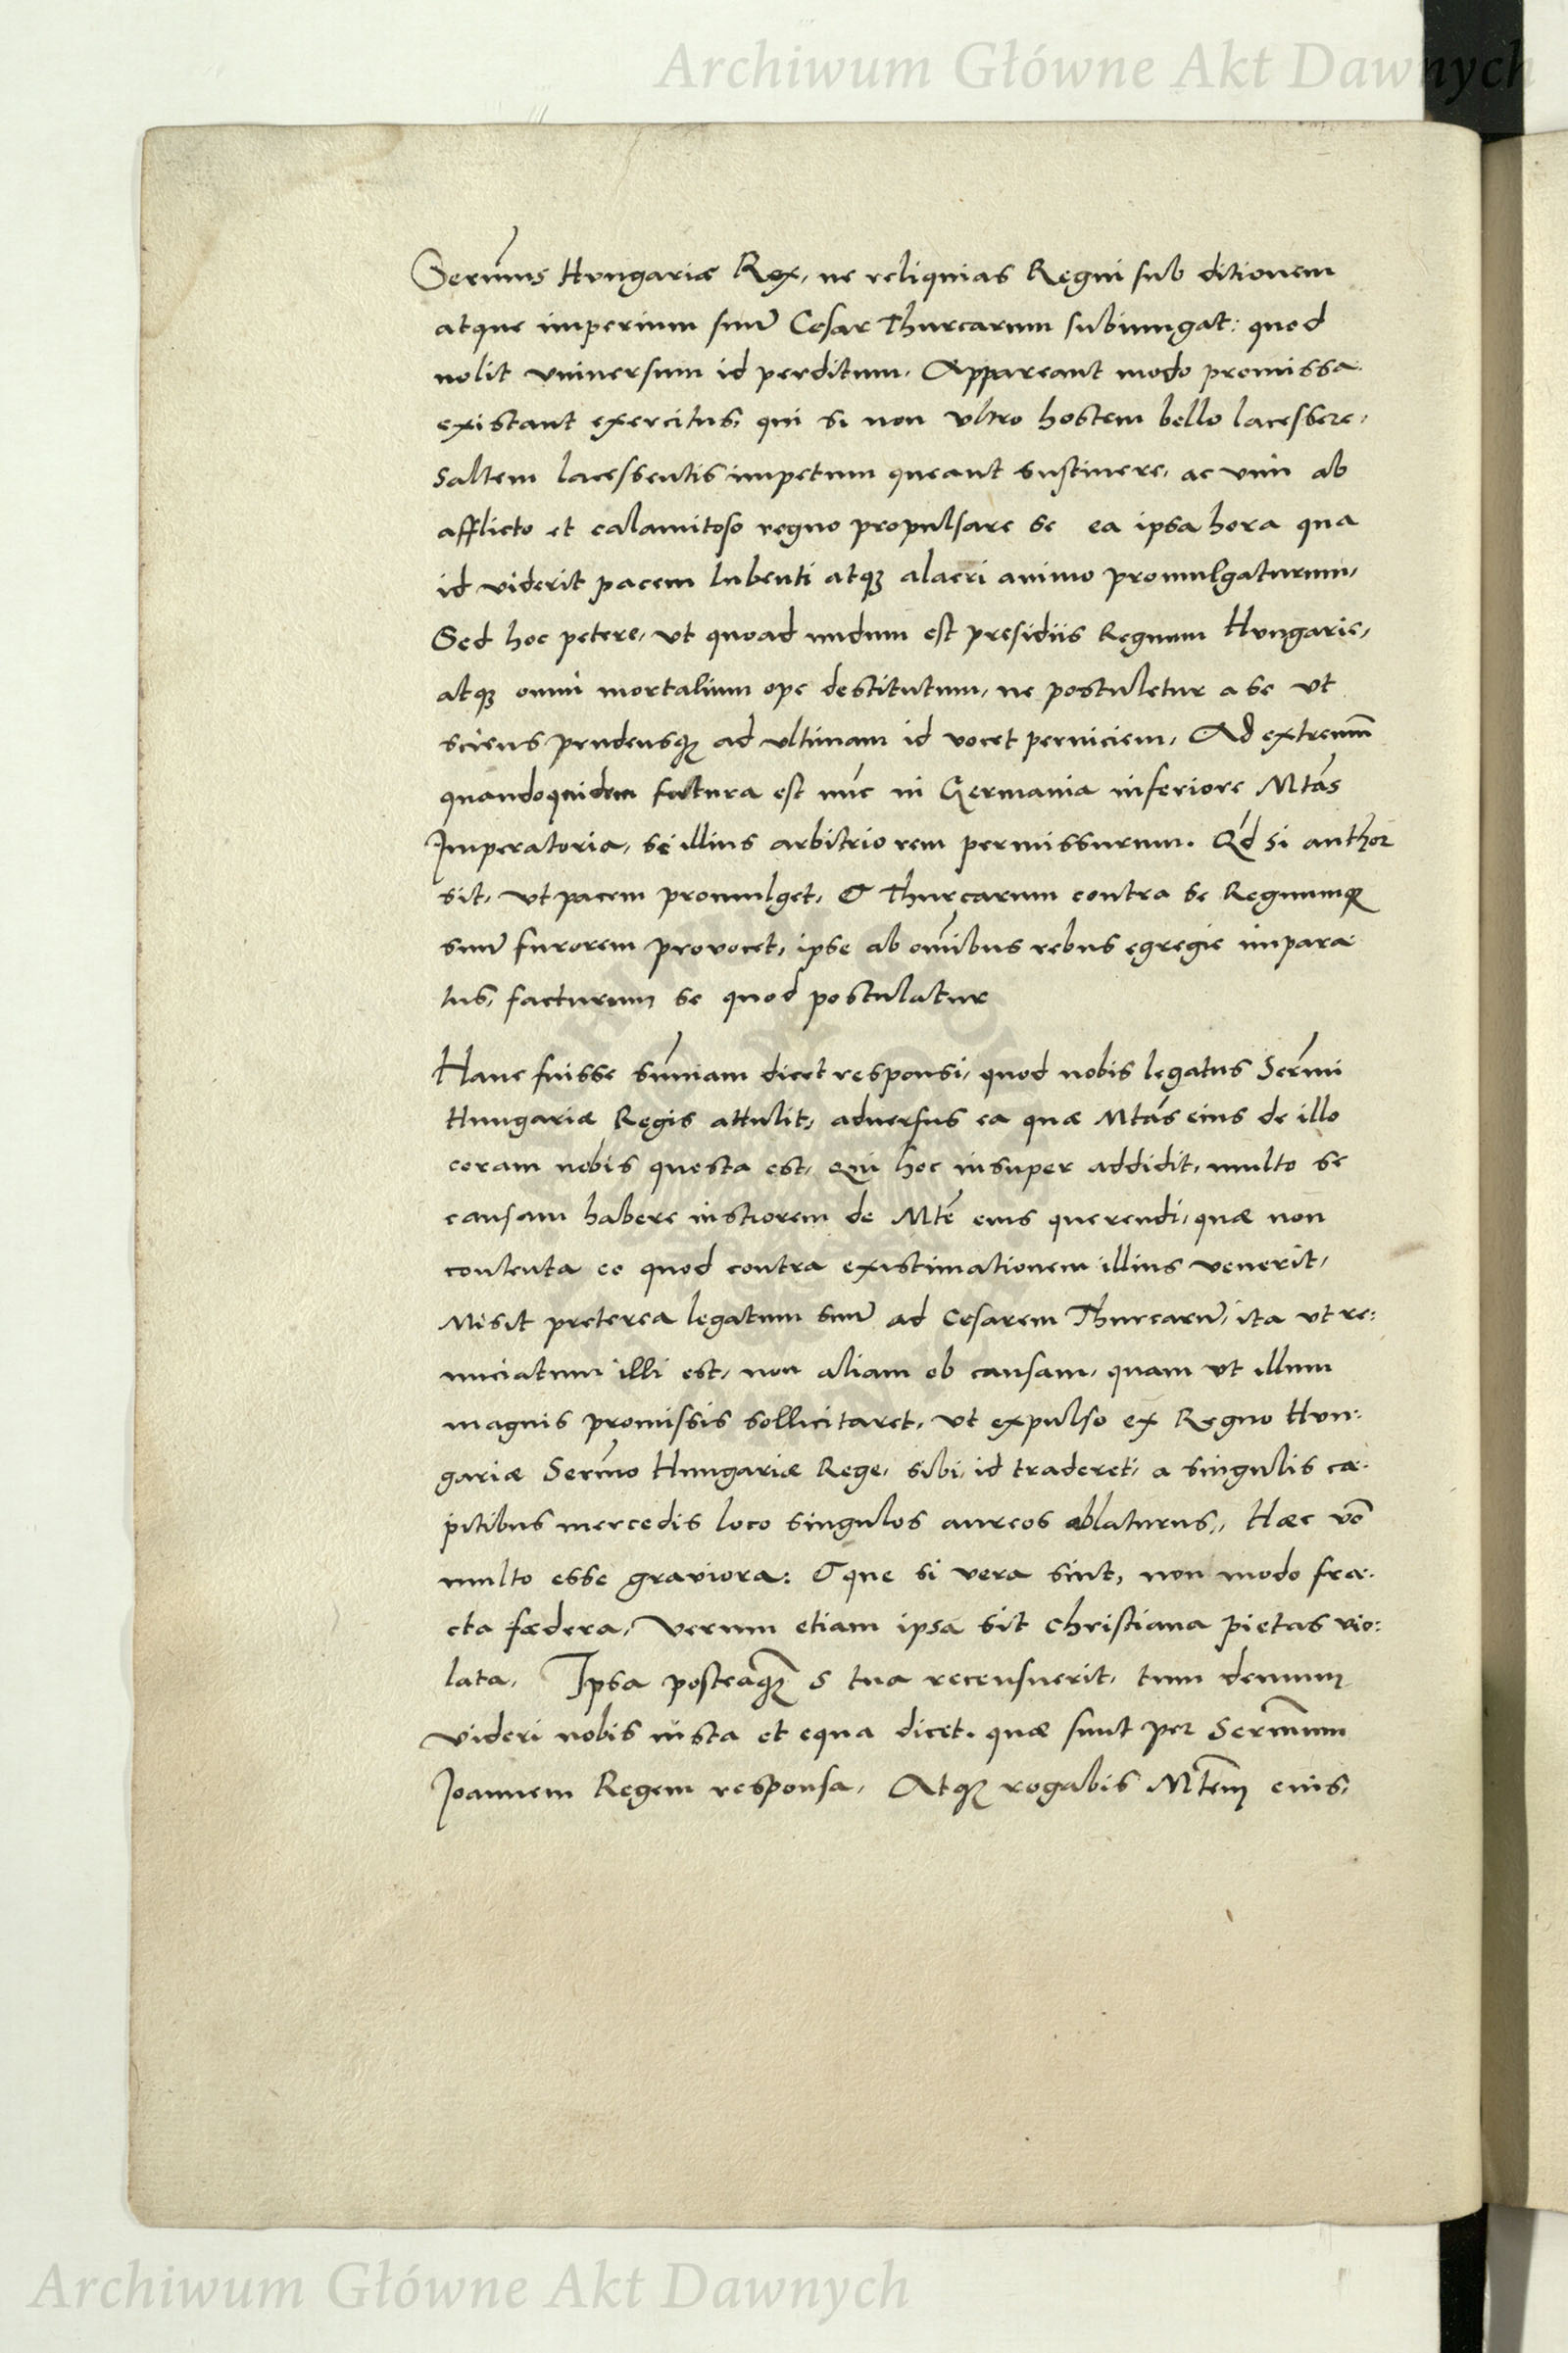 Archiwum Główne Akt Dawnych
Serm̃us Hvngariæ Rex, ne reliquias Regni sub ditionem
atque imperium suũ Cesar Thurcarum subiungat: quod
nolit vniuersum id perditum. Appareant modo promissa.
existant exercitus, qui si non vltro hostem bello lacessere,
saltem lacessentis impetum queant sustinere, ac vim ab
afflicto et calamitoso regno propulsare se ea ipsa hora qua
id viderit pacem lubenti atqȝ alacri animo promulgaturum,
Sed hoc petere, vt quoad nudum est presidiis Regnum Hvngarie,
atqȝ omni mortalium ope destitutum, ne postuletur a se vt
sciens prudensqȝ ad vltimam id vocet perniciem, Ad extremũ
quandoquidem futura est nũc in Germania inferiore Mtas
Imperatoria, se illius arbitrio rem permissurum. Qd si author
sit, vt pacem promulget, & Thurcarum contra se Regnumqȝ
suũ furorem prouocet, ipse ab om̃ibus rebus egregie impara
tus, facturum se quod postulatur
Hanc fuisse sum̃am dicet responsi, quod nobis legatus Serm̃i
Hungariæ Regis attulit, aduersus ea quæ Mtas eius de illo
coram nobis questa est, Qui hoc insuper addidit, multo se
causam habere iustiorem de Mte eius querendi, quæ non
contenta eo quod contra existimationem illius venerit,
Misit preterea legatum suũ ad Cesarem Thurcarũ, ita vt re:
nuciatum illi est, non aliam ob causam, quam vt illum
magnis promissis sollicitaret, vt expulso ex Regno Hvn:
gariæ Serm̃o Hungariæ Rege, sibi, id traderet, a singulis ca:
pitibus mercedis loco singulos aureos ablaturus,, Hæc vo
multo esse grauiora: & que si vera sint, non modo fra:
cta fædera, Verum etiam ipsa sit christiana pietas vio:
lata, Ipsa posteaqȝ S tua recensuerit, tum demum
videri nobis iusta et equa dicet. quæ sunt per Serm̃um
Joannem Regem responsa, Atqȝ rogabis Mtem eius,
Archiwum Główne Akt Dawnych